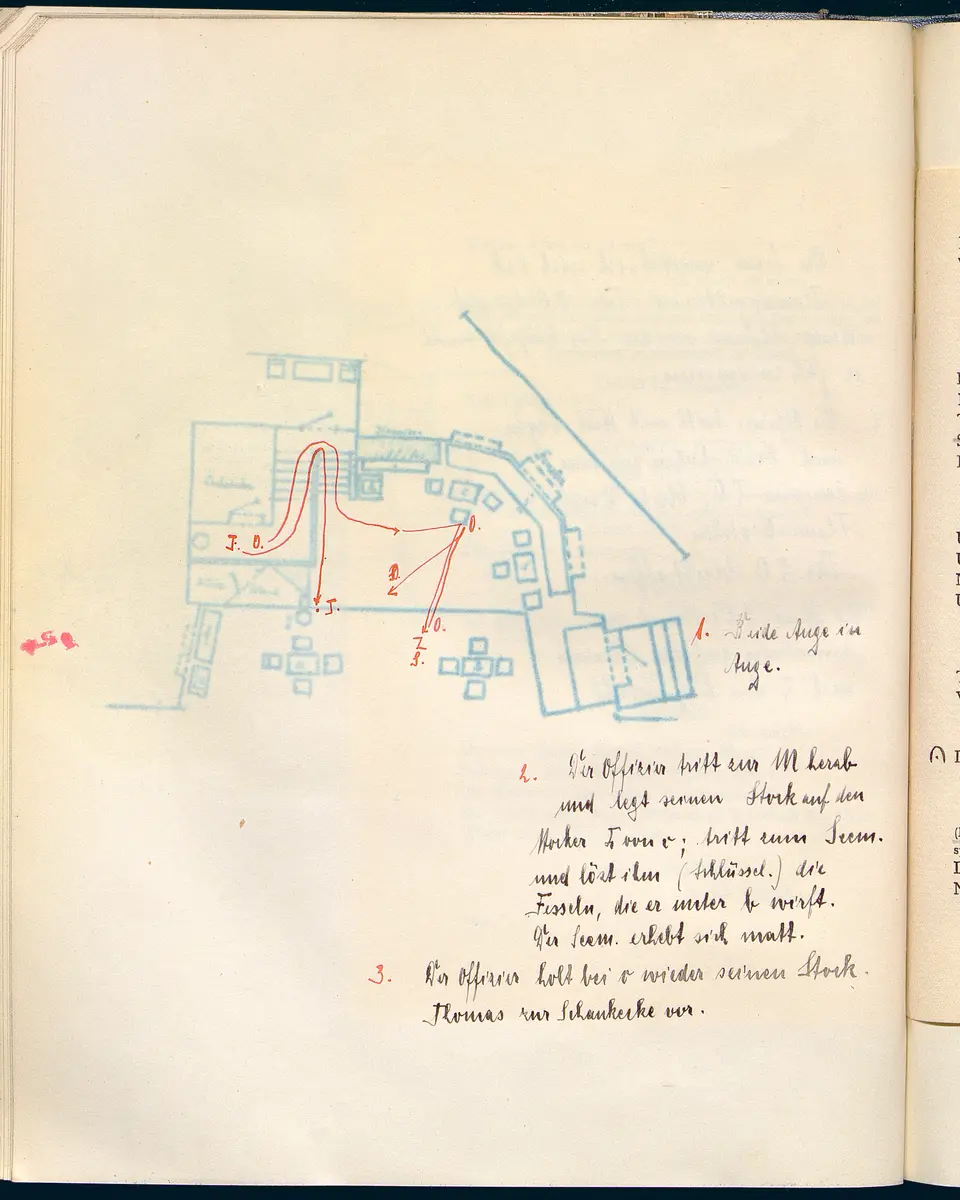 T. O.
O.
O.
T.
O.
S.
1. Beide Auge in
Auge.
2. Der Offizier tritt zur M herab
und legt seinen Stock auf den
Hocker von c; tritt zum Seem.
und löst ihm (Schlüssel.) die
Fesseln, die er unter b wirft.
Der Seem. erhebt sich matt.
3. Der Offizier holt bei c wieder seinen Stock.
Thomas zur Schankecke vor.